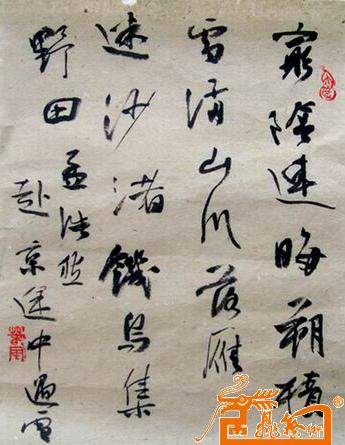 窮陰連晦朔積
雪滿山川落雁
迷沙渚饑烏集
野田孟浩然
赴京途中遇雪